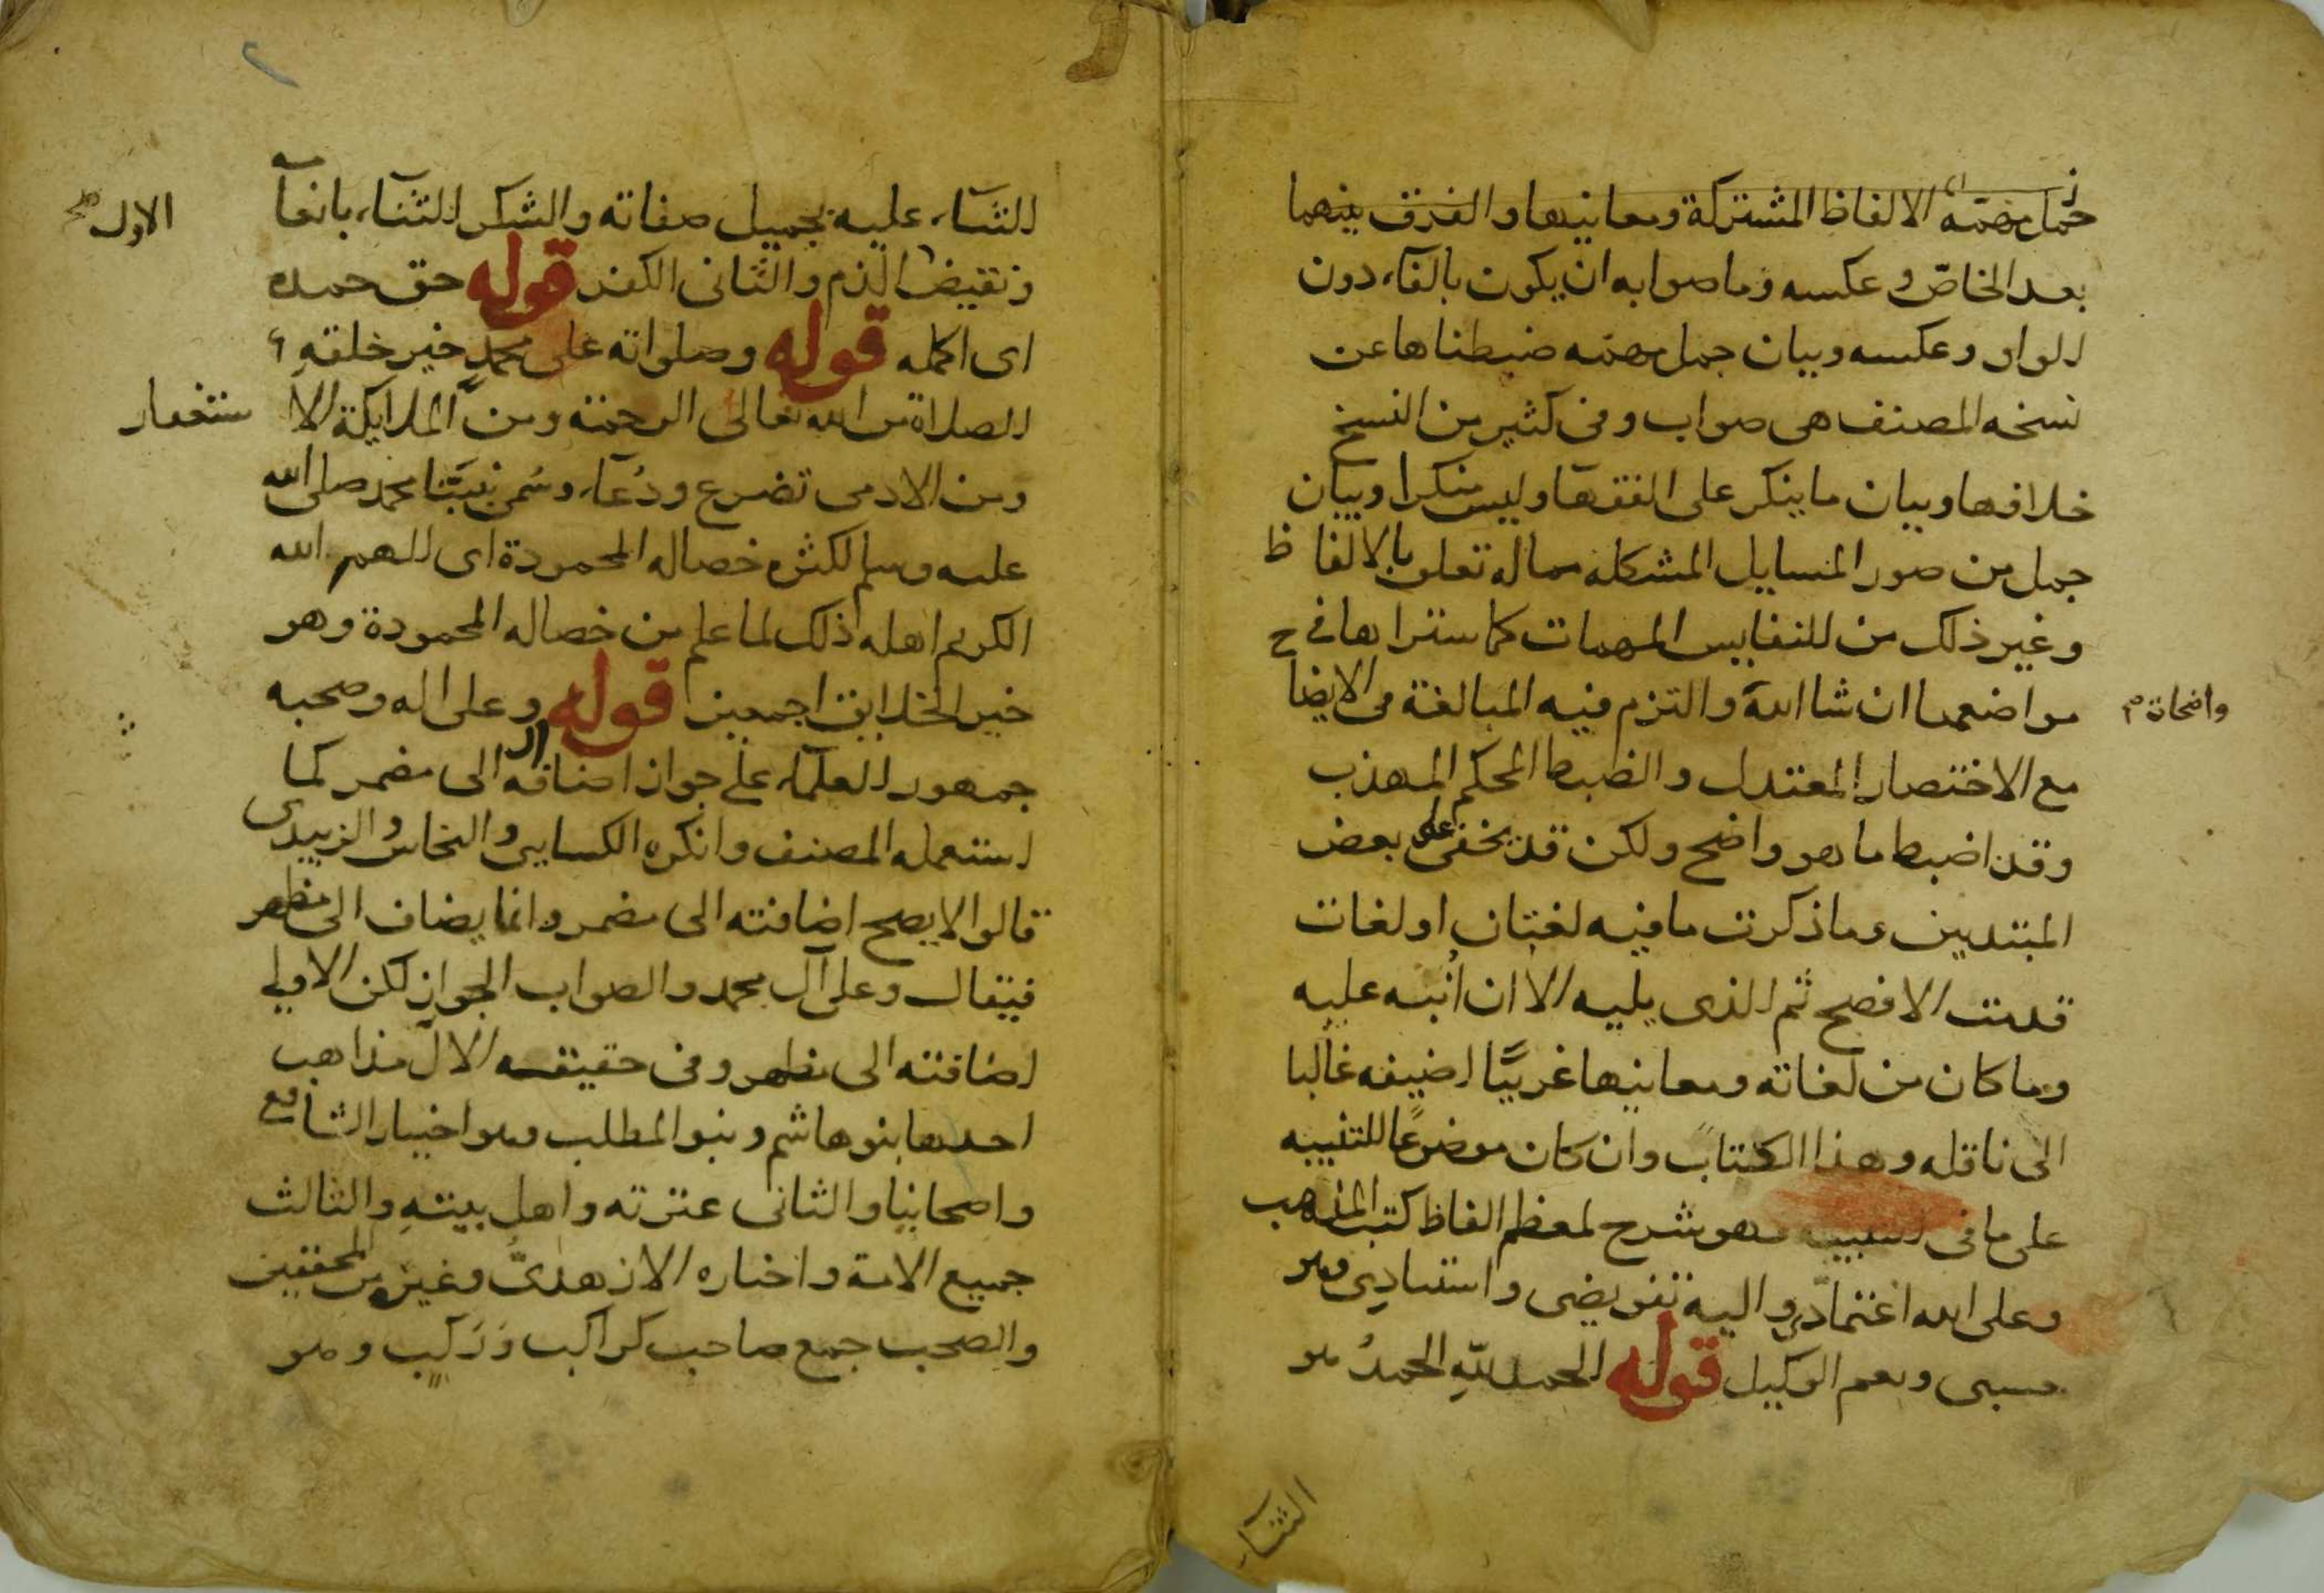 جمل مهمة الالفاظ المشتركة ومعانيها والفرق بينهما
بعد الخاصّ وعكسه وما صوابه ان يكون بالفآء دون
الواو وعكسه وبيان جمل مهمه ضبطناها عن
نسخه المصنف هى صواب وفى كثير من النسخ
خلافها وبيان ما ينكر على الفقهآ وليس منكرا وبيان
جمل من صور المسايل المشكله مما له تعلق بالالفاظ
وغير ذلك من النفايس المهمات كما ستراها في
مواضعها ان شا الله والتزم فيه المبالغة فى الايضا
واضحاة
مع الاختصار المعتدل والضبط المحكم المهذب
وقد اضبط ما هو واضح ولكن قد يخفى على بعض
المبتديين وما ذكرت ما فيه لغتان او لغات
قدمت الافصح ثم الذى يليه الا ان انبه عليه
وما كان من لغاته ومعانيها غريبًا اضيفه غالبا
الى ناقله وهذا الكتاب وان كان موضوعًا للتنبيه
على ما فى التنبيه فهو شرح لمعظم الفاظ كتب المذهب
وعلى الله اعتمادى واليه تفويضى واستنادى وهو
حسبى ونعم الوكيل قوله الحمد لله الحمدُ هو
الثنآء
الثنآء عليه بجميل صفاته والشكر الثنآء بانعآ
مه
ونقيض الذم والثانى الكفر قوله حق حمده
الاول صح
اى اكمله قوله وصلواته على محمدٍ خير خلقهِ
الصلاة من الله تعالى الرحمة ومن الملايكة الاستغفار
ومن الادمى تضرع ودُعآء وسُمى نبيّنا محمد صلى الله
عليه وسلم لكثره خصاله المحمودة اى الهم الله
الكريم اهله ذلك لما علم من خصاله المحمودة وهو
خير الخلايق اجمعين قوله وعلى اله وصحبه
جمهور العلمآء على جواز اضافه ال الى مضمر كما
استعمله المصنف وانكره الكسايى والنحاس والزبيدى
قالوا لا يصح اضافته الى مضمر وانما يضاف الى مظهر
فيقال وعلى آل محمد والصواب الجواز لكن الاولى
اضافته الى مظهر وفى حقيقه الآل مذاهب
احدها بنو هاشم وبنو المطلب وهو اختيار الشافعى
واصحابنا والثانى عترته واهل بيتهِ والثالث
جميع الامة واختاره الازهرىّ وغيره من المحققين
والصحب جمع صاحب كراكب وركب وهو